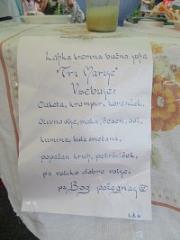 Lahka kremna bučna juha
"Tri Marije"
Vsebuje:
Čebula, krompir, korenček,
olivno olje, moka, česen, sol,
kumina, kisla smetana,
popečen kruh, peteršiljček,
pa veliko dobre volje.
pa Bog požegnaj